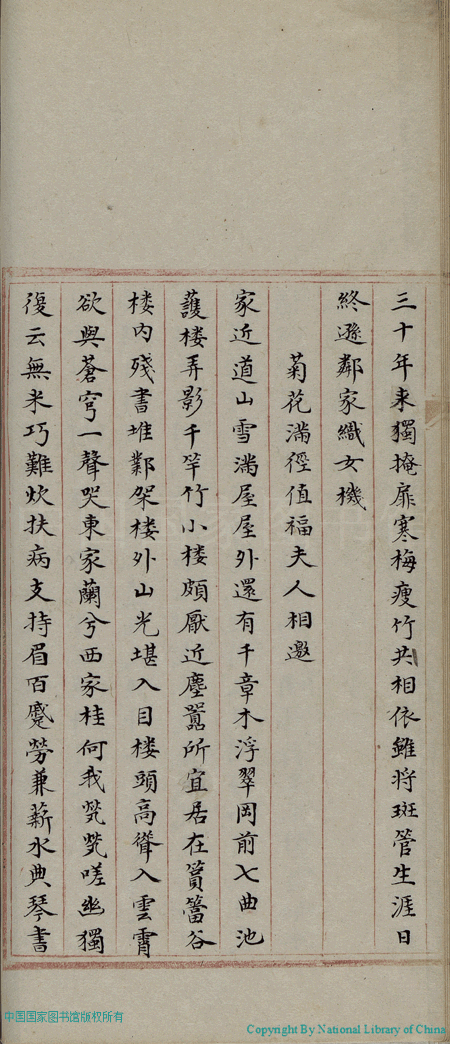 三十年来獨掩扉寒梅瘦竹共相依雖将斑管生涯日
終遜鄰家織女機
菊花滿徑值福夫人相邀
家近道山雪滿屋屋外還有千章木浮翠岡前七曲池
護楼弄影千竿竹小楼頗厭近塵嚣所宜居在篔簹谷
楼内殘書堆鄴架楼外山光堪入目楼頭高聳入雲霄
欲與蒼穹一聲哭東家蘭兮西家桂何我煢煢嗟幽獨
復云無米巧難炊扶病支持眉百蹙勞兼薪水典琴書
中国国家图书馆版权所有
Copyright By National Library of China